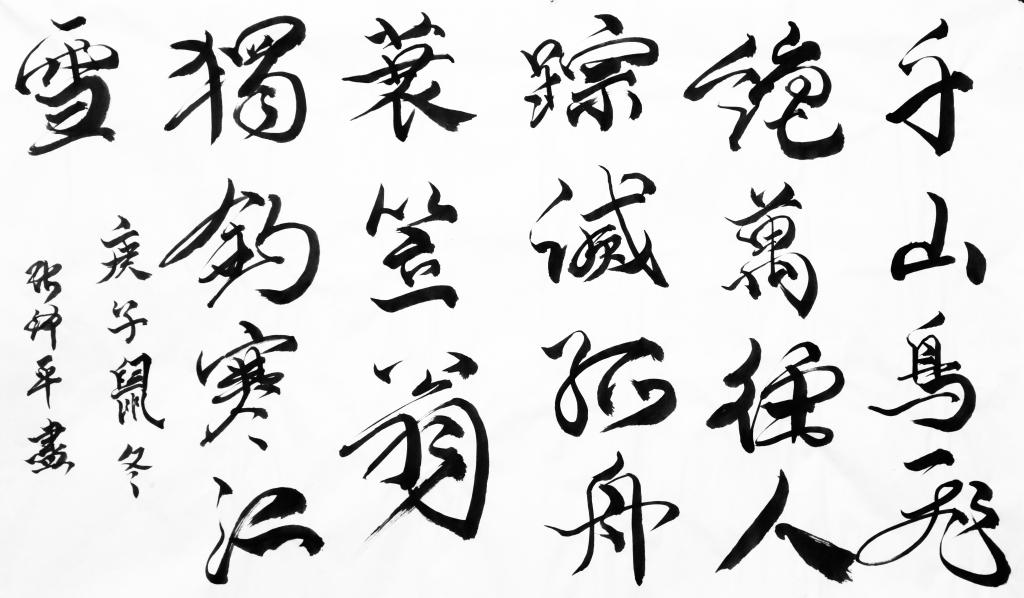 千山鳥飛
絕萬徑人
踪滅孤舟
蓑笠翁
獨釣寒江
雪
庚子鼠冬
张平書